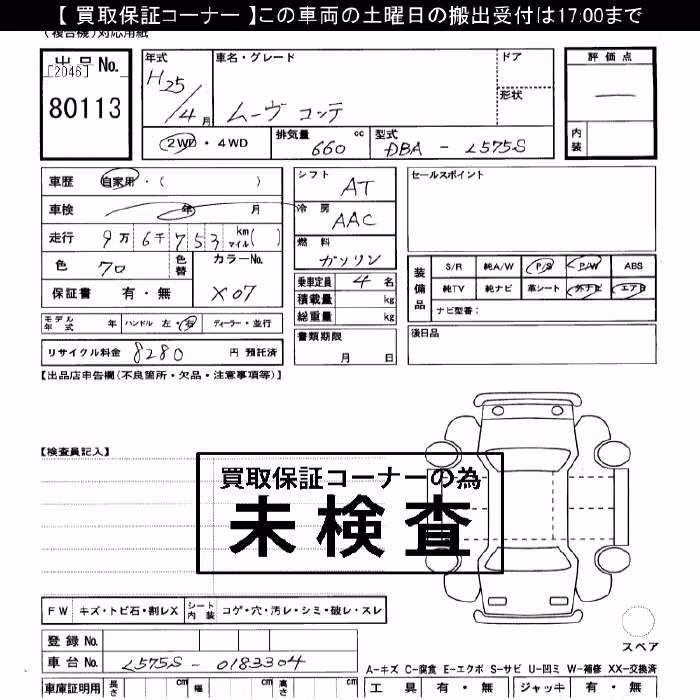 【 買取保証コーナー 】この車両の土曜日の搬出受付は17:00まで
(複合機)対応用紙
出品 No.
[2046]
80113
年式
H25/4月
車名・グレード
ムーヴ コンテ
ドア
形状
2WD・4WD
排気量 660 cc
型式 DBA - L575S
評価点
内装
車歴 自家用・( )
車検 年 月
走行 9万 6千 7 5 3 km マイル( )
色 クロ
色替
カラーNo.
X07
保証書 有・無
シフト AT
冷房 AAC
燃料 ガソリン
乗車定員 4 名
積載量 kg
総重量 kg
セールスポイント
装備品
S/R 純A/W P/S P/W ABS
純TV 純ナビ 革シート 外ナビ エアB
ナビ型番:
モデル年式 年 ハンドル 左・右 ディーラー・並行
リサイクル料金 8280 円 預託済
書類期限
月 日
後日品
【出品店申告欄(不良箇所・欠品・注意事項等)】
【検査員記入】
買取保証コーナーの為
未検査
FW キズ・トビ石・割レX シート内装 コゲ・穴・汚レ・シミ・破レ・スレ
登録 No.
車台 No. L575S - 0183304
車庫証明用 長さ cm 幅 cm 高さ cm
スペア
A-キズ C-腐食 E-エクボ S-サビ U-凹ミ W-補修 XX-交換済
工具 有・無 ジャッキ 有・無